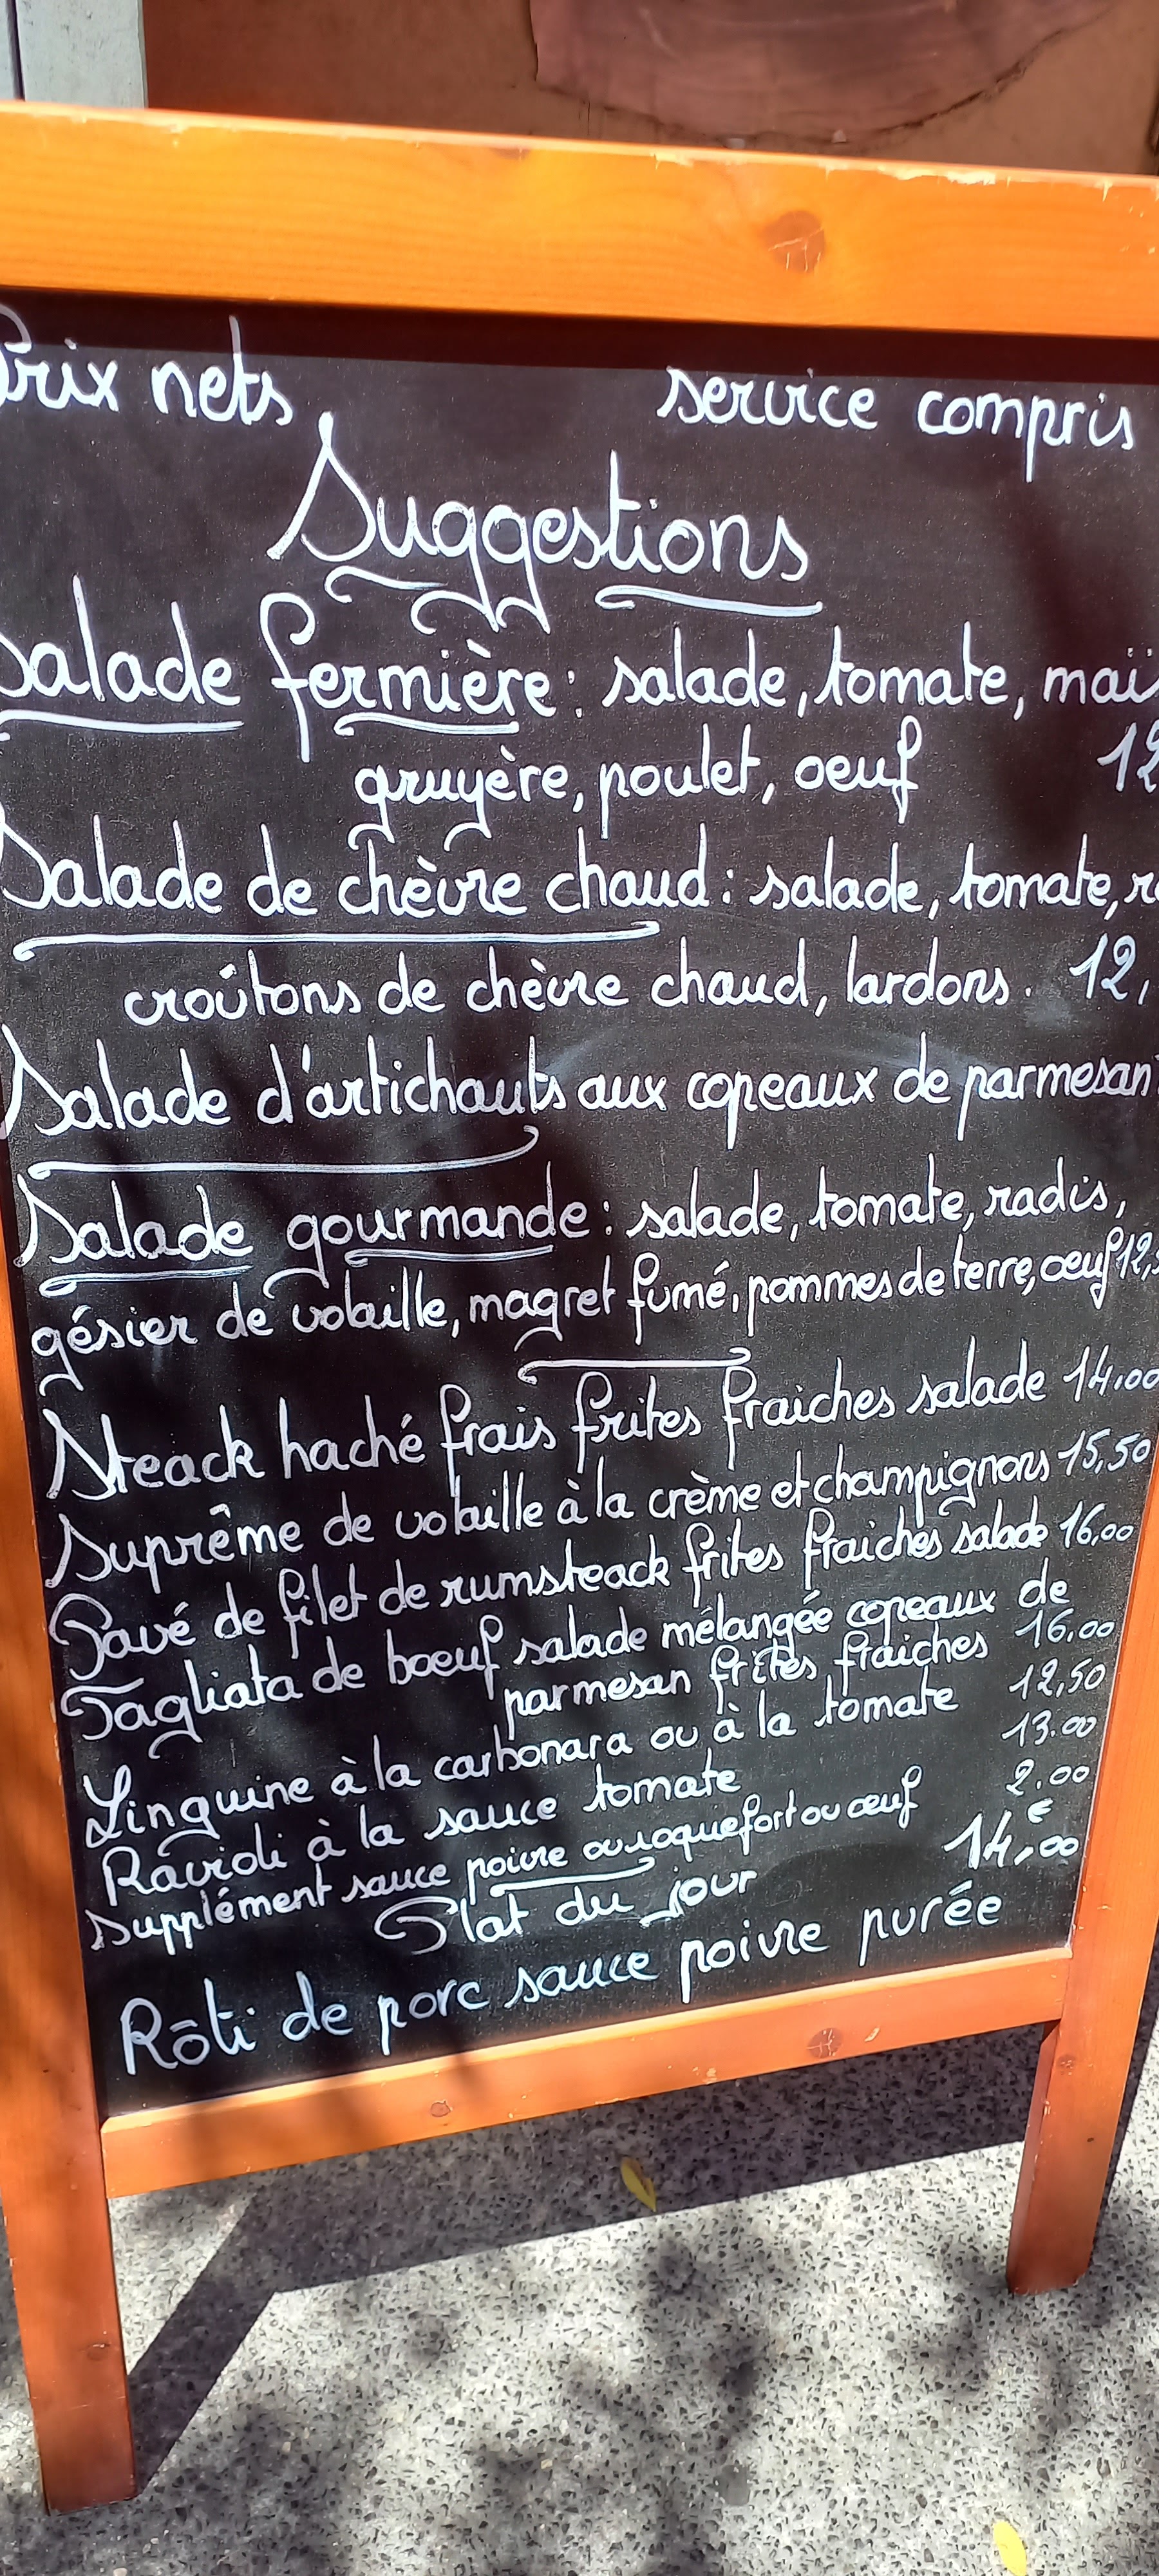 Prix nets service compris
Suggestions
Salade fermière : salade, tomate, maï
gruyère, poulet, oeuf 12
Salade de chèvre chaud : salade, tomate,
croûtons de chèvre chaud, lardons. 12,
Salade d'artichauts aux copeaux de parmesan
Salade gourmande : salade, tomate, radis,
gésier de volaille, magret fumé, pommes de terre, oeuf 12,
Steack haché frais frites fraiches salade 14,00
Suprême de volaille à la crème et champignons 15,50
Pavé de filet de rumsteack frites fraiches salade 16,00
Tagliata de boeuf salade mélangée copeaux de
parmesan frites fraiches 16,00
Linguine à la carbonara ou à la tomate 12,50
Ravioli à la sauce tomate 13.00
Supplément sauce poivre ou roquefort ou oeuf 2.00
Plat du jour 14,00 €
Rôti de porc sauce poivre purée